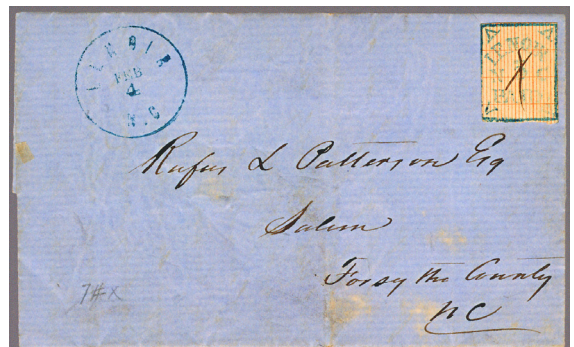 LENOIR
FEB
4
N.C
LENOIR
N.C
Rufus L Patterson Esq
Salem
Forsythe County
NC
7#X